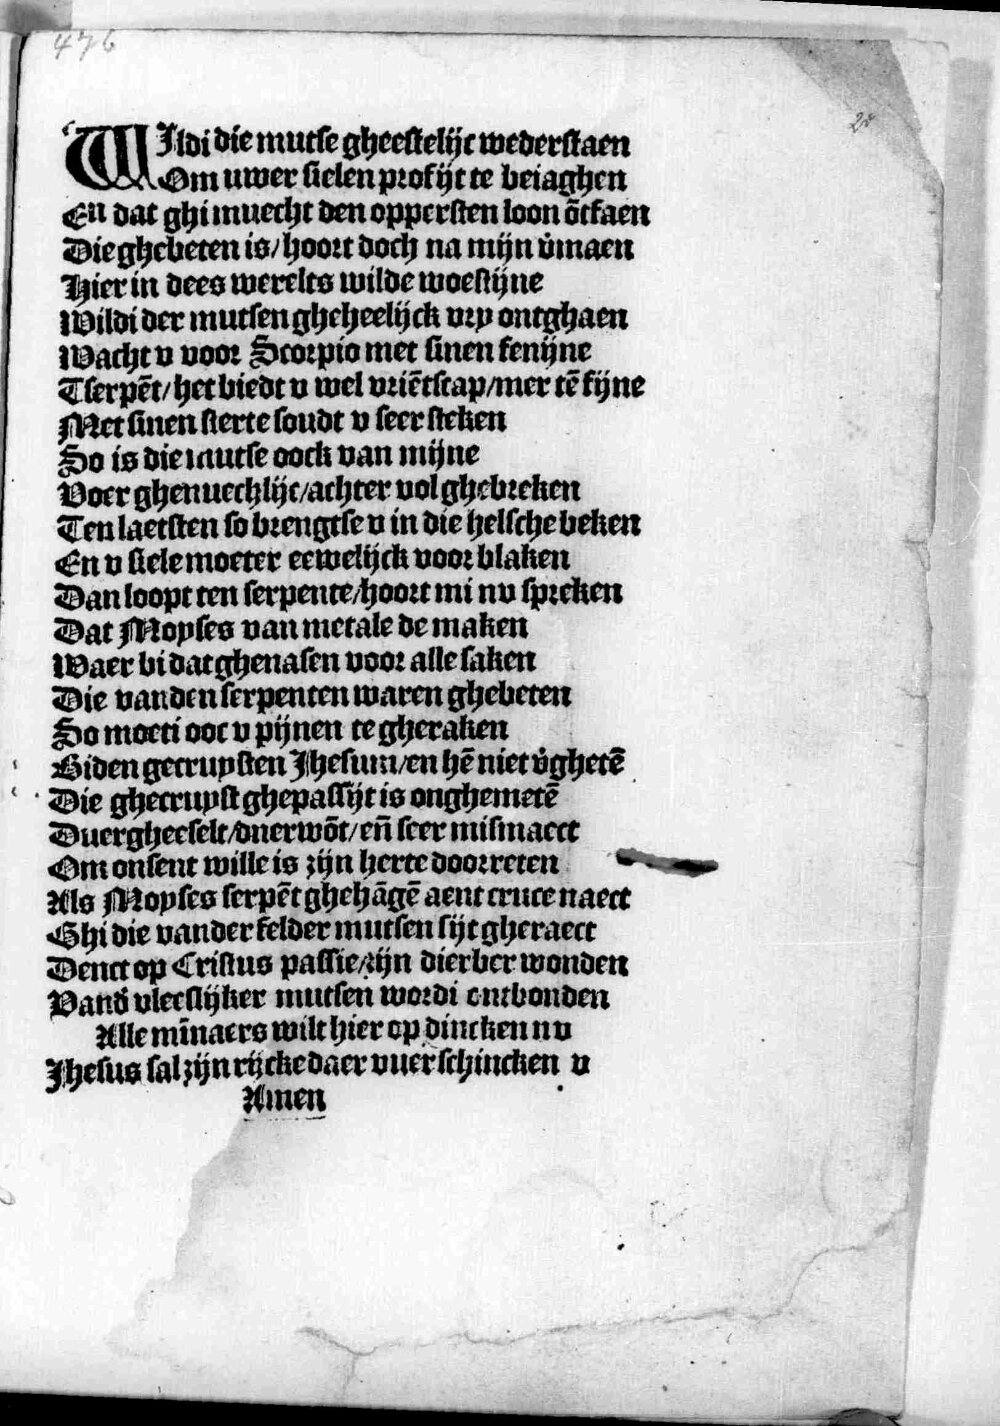 476
20
WIldi die mutse gheestelijc wederstaen
Om uwer sielen profijt te beiaghen
En dat ghi muecht den oppersten loon ōtfaen
Die ghebeten is/hoort doch na mijn v̄maen
Hier in dees werelts wilde woestijne
Wildi der mutsen gheheelijck vry ontghaen
Wacht v voor Scorpio met sinen fenijne
Tserpēt/het biedt v wel vriētscap/mer tē fijne
Met sinen sterte soudt v seer steken
So is die mutse oock van mijne
Voer ghenuechlijc/achter vol ghebreken
Ten laetsten so brengtse v in die helsche beken
En v siele moeter eewelijck voor blaken
Dan loopt ten serpente/hoort mi nv spreken
Dat Moyses van metale de maken
Waer bi dat ghenasen voor alle saken
Die vanden serpenten waren ghebeten
So moeti ooc v pijnen te gheraken
Biden gecruysten Jhesum/en hē niet v̄ghetē
Die ghecruyst ghepassijt is onghemetē
Duergheeselt/duerwōt/eñ seer mismaect
Om onsent wille is zijn herte doorreten
Als Moyses serpēt ghehāgē aent cruce naect
Ghi die vander kelder mutsen sijt gheraect
Denct op Cristus passie/zijn dierber wonden
Vand̄ vleeslijker mutsen wordi ontbonden
Alle mīnaers wilt hier op dincken nv
Jhesus sal zijn rijcke daer vuer schincken v
Amen